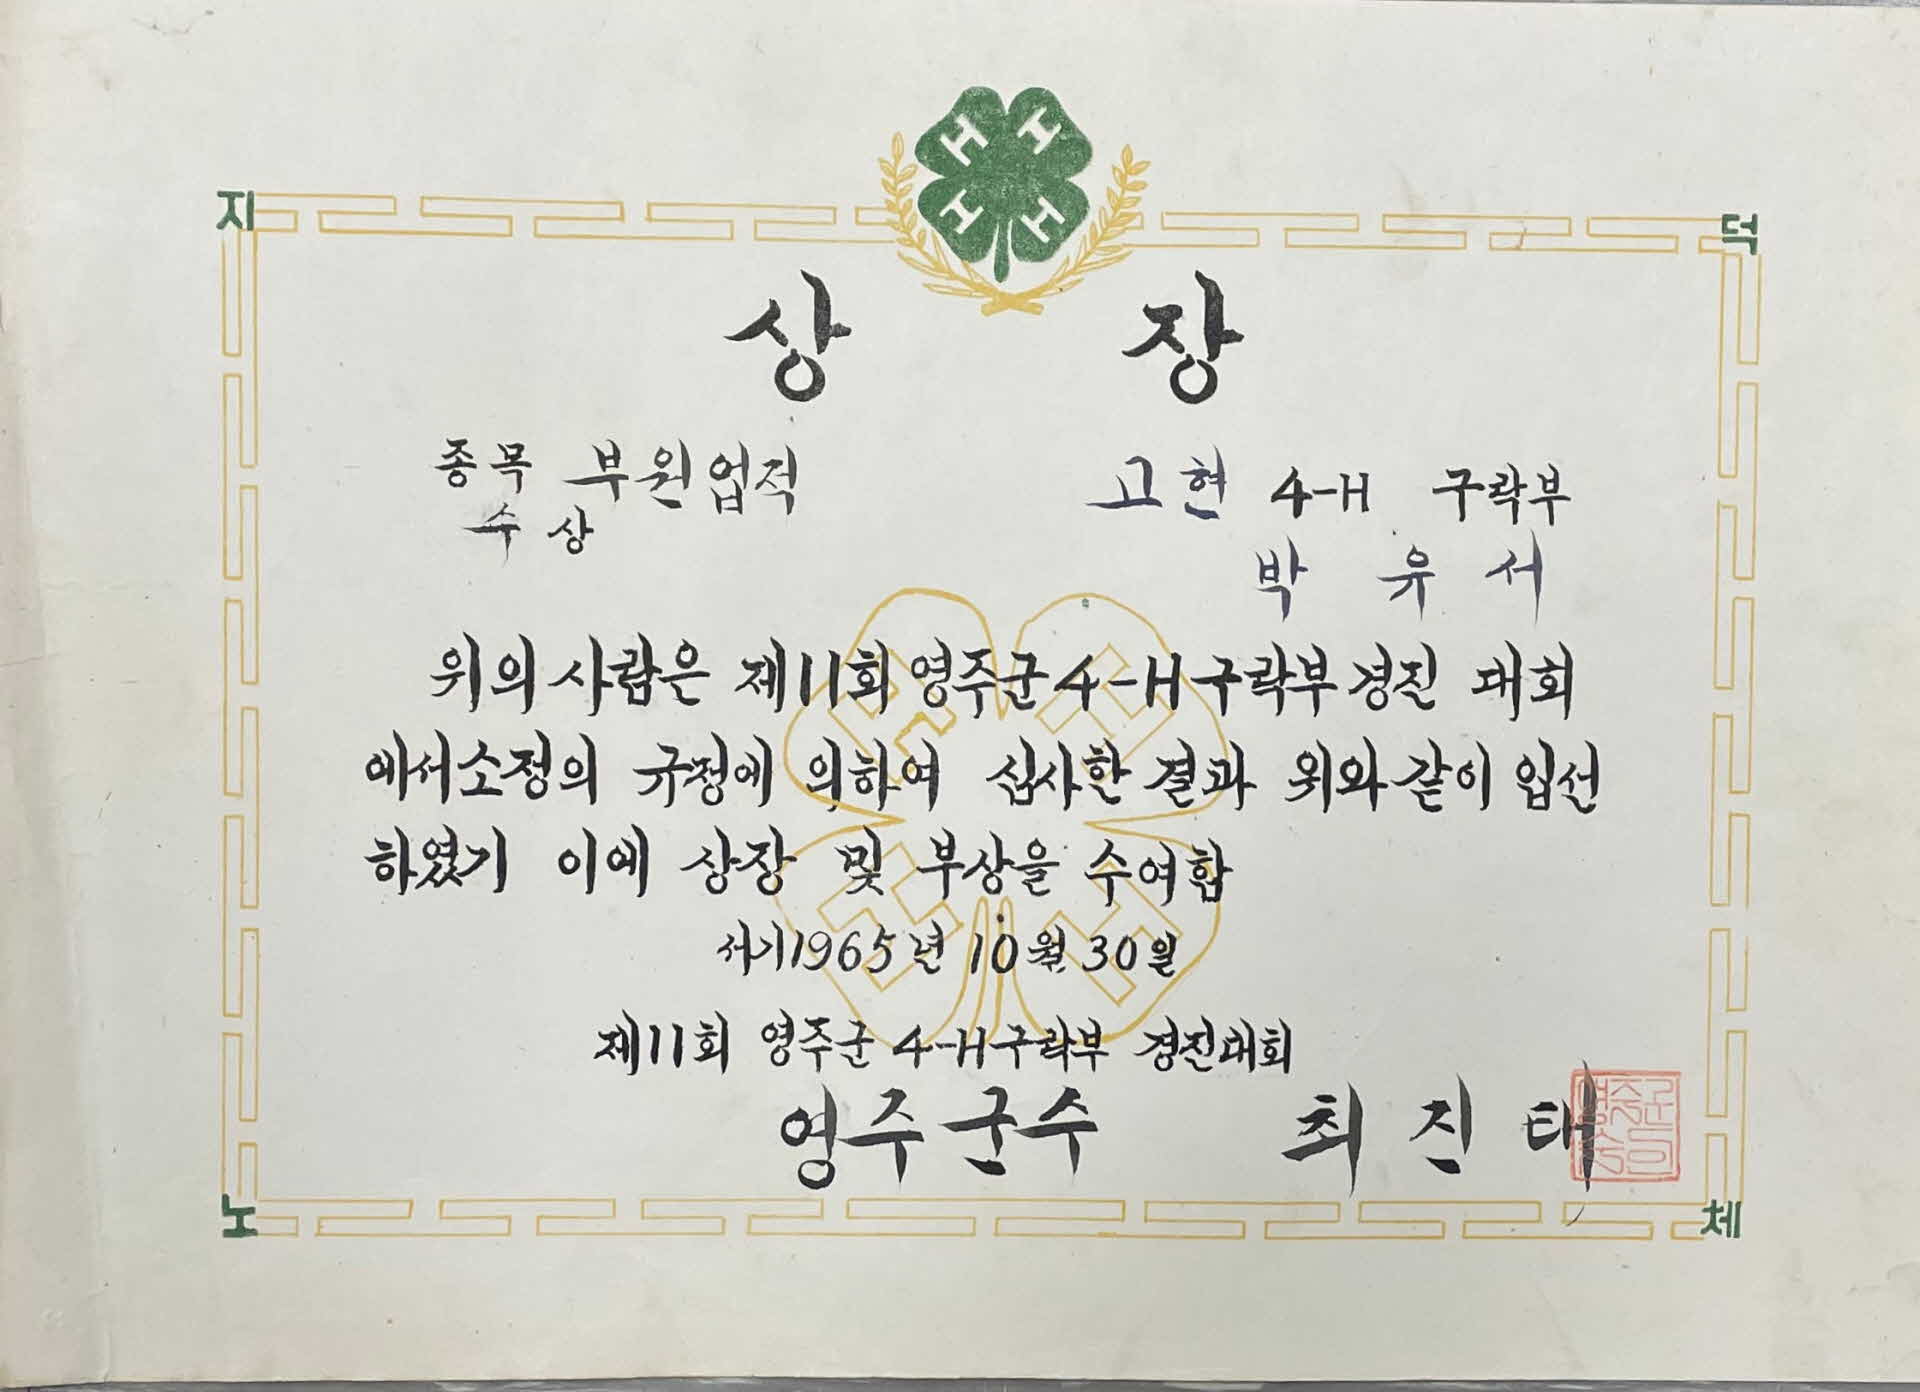 H H
H H
지 덕
상 장
종목 부원업적
수상
고현 4-H 구락부
박 유 서
위의 사람은 제11회 영주군 4-H 구락부 경진 대회
에서 소정의 규정에 의하여 심사한 결과 위와 같이 입선
하였기 이에 상장 및 부상을 수여함
서기 1965년 10월 30일
제11회 영주군 4-H 구락부 경진대회
영주군수 최 진 태
영주군수의
노 체